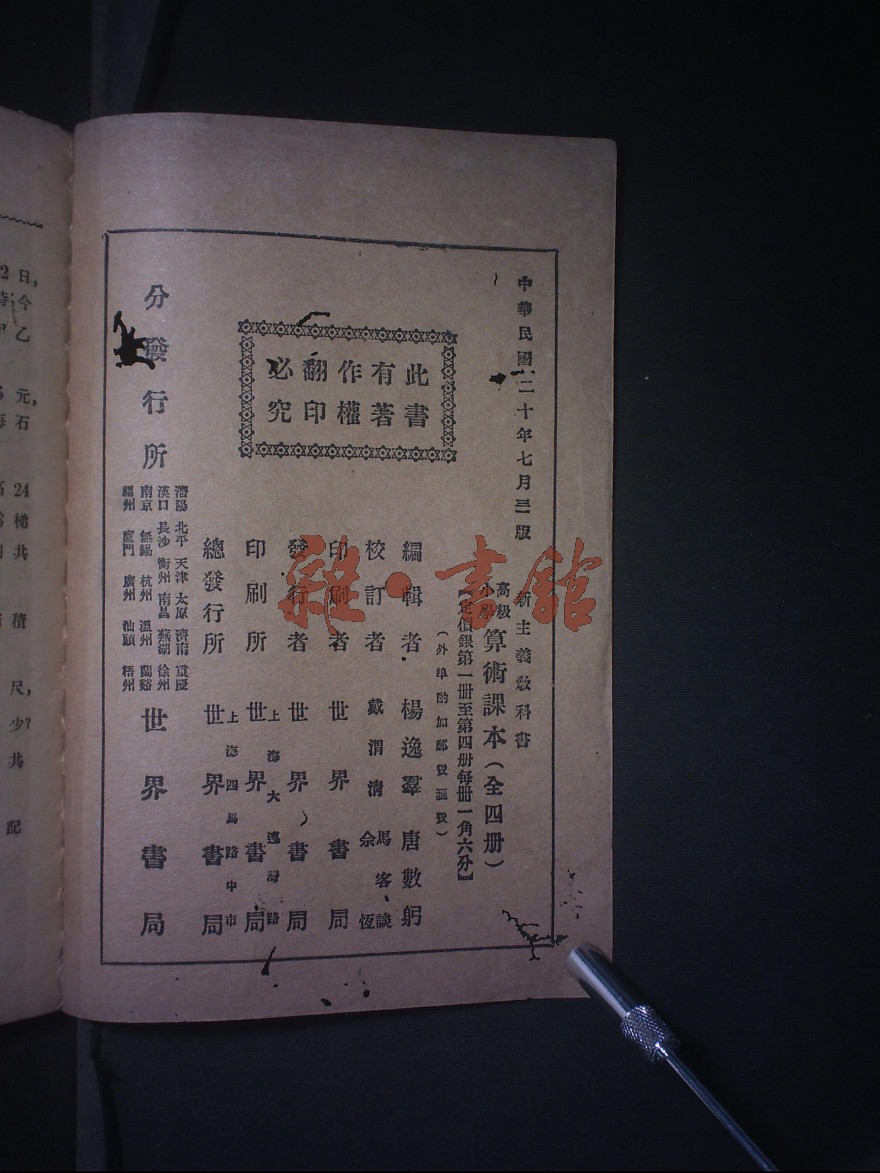 中華民國二十年七月三版
新主義教科書
高級小學 算術課本（全四册）
【定價銀第一册至第四册每册一角六分】
（外埠酌加郵費匯費）
此書
有著
作權
翻印
必究
編輯者 楊逸羣 唐數躬
校訂者 戴渭清 馬客談 佘恆
印刷者 世界書局
發行者 世界書局
印刷所 上海大連灣路 世界書局
總發行所 上海四馬路中市 世界書局
分發行所
瀋陽 北平 天津 太原 濟南 重慶
漢口 長沙 衡州 南昌 蕪湖 徐州
南京 無錫 杭州 溫州 蘭谿
福州 廈門 廣州 汕頭 梧州
世界書局
雜·書館
2日,
今
乙
元,
石
24
梯
共
積
尺,
少?
共
配